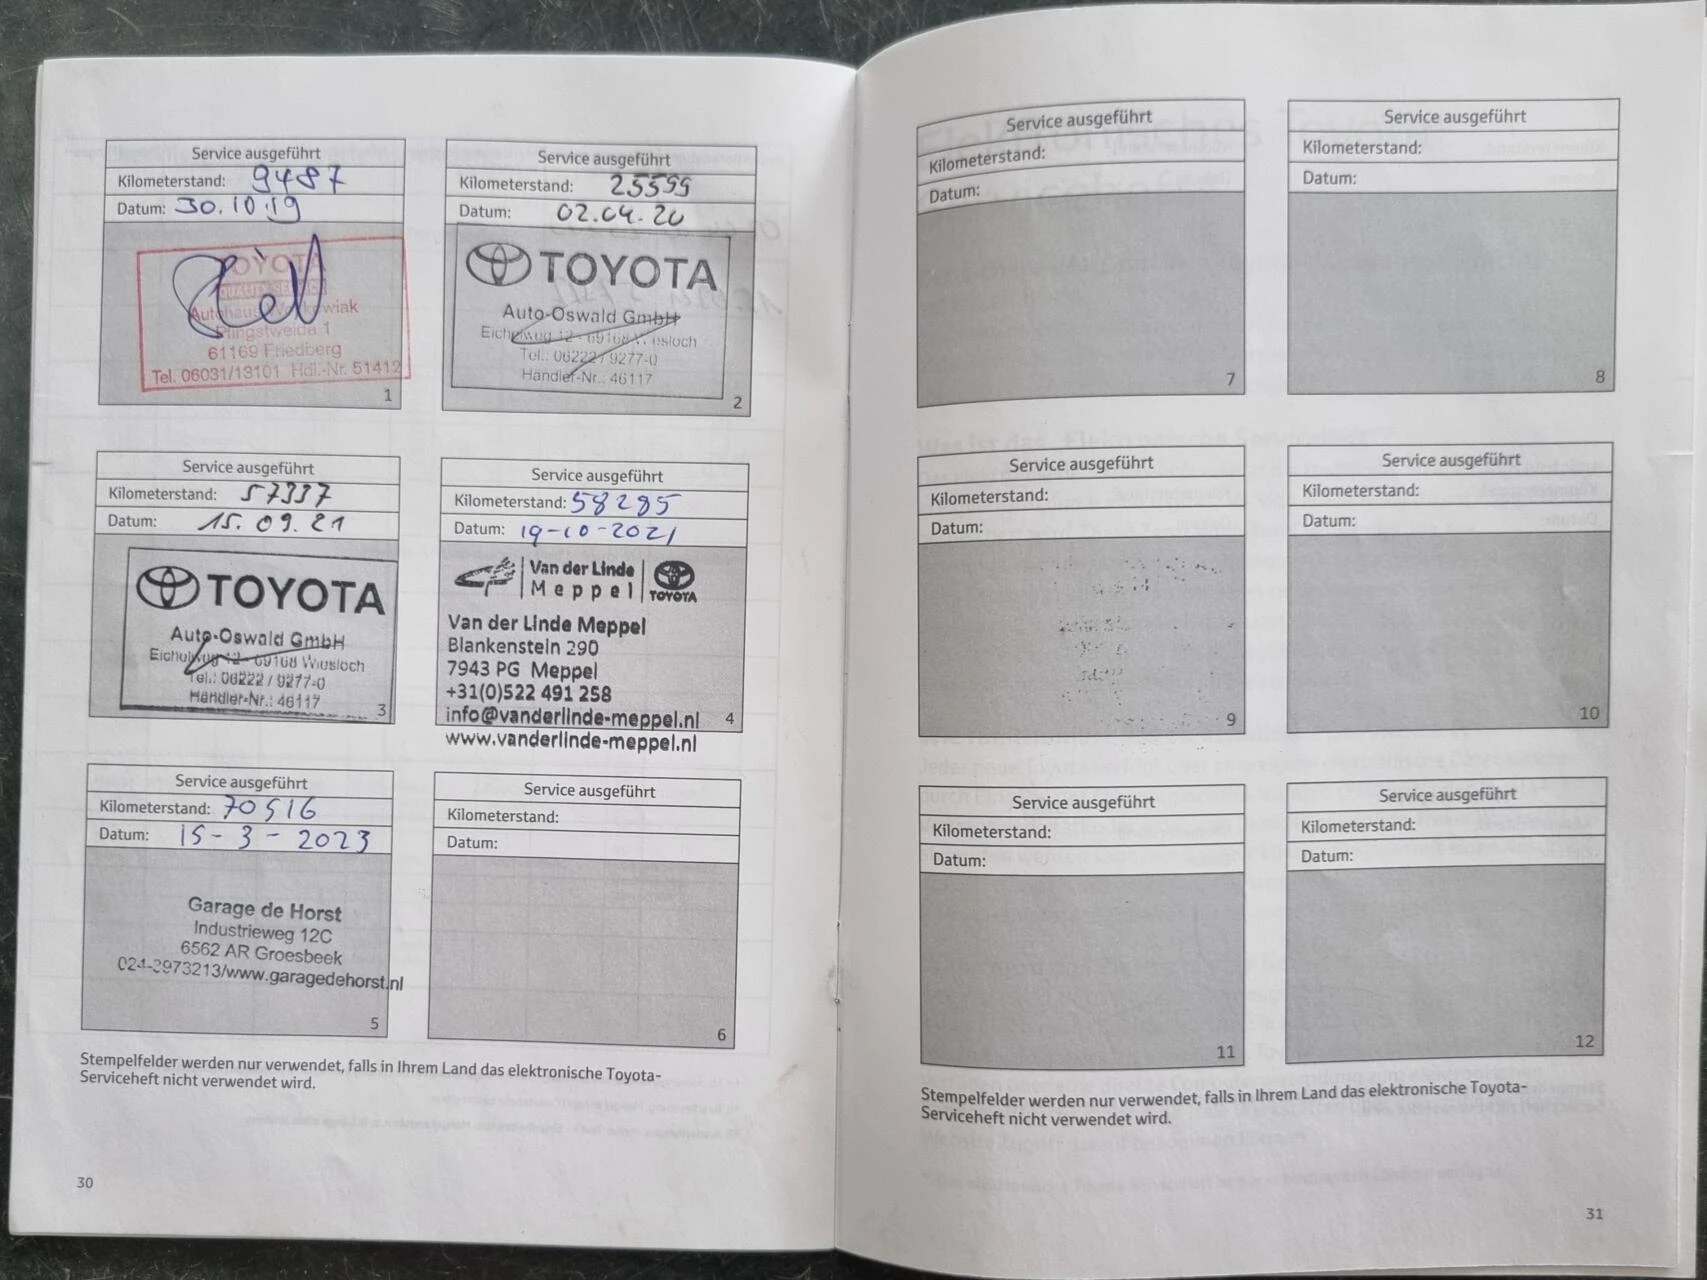 Service ausgeführt
Kilometerstand: 9487
Datum: 30.10.19
TOYOTA
QUALITY SERVICE
Autohaus
Pfingstweide 1
61169 Friedberg
Tel. 06031/13101 Hdl.-Nr. 51412
1
Service ausgeführt
Kilometerstand: 25599
Datum: 02.04.20
TOYOTA
Auto-Oswald GmbH
Eichelweg 12 - 69168 Wiesloch
Tel.: 06222 / 9277-0
Händler-Nr.: 46117
2
Service ausgeführt
Kilometerstand: 57337
Datum: 15.09.21
TOYOTA
Auto-Oswald GmbH
Eichelweg 12 - 69168 Wiesloch
Tel.: 06222 / 9277-0
Händler-Nr.: 46117
3
Service ausgeführt
Kilometerstand: 58285
Datum: 19-10-2021
Van der Linde
Meppel
TOYOTA
Van der Linde Meppel
Blankenstein 290
7943 PG Meppel
+31(0)522 491 258
info@vanderlinde-meppel.nl
4
www.vanderlinde-meppel.nl
Service ausgeführt
Kilometerstand: 70516
Datum: 15-3-2023
Garage de Horst
Industrieweg 12C
6562 AR Groesbeek
024-3973213/www.garagedehorst.nl
5
Service ausgeführt
Kilometerstand:
Datum:
6
Stempelfelder werden nur verwendet, falls in Ihrem Land das elektronische Toyota-
Serviceheft nicht verwendet wird.
30
Service ausgeführt
Kilometerstand:
Datum:
7
Service ausgeführt
Kilometerstand:
Datum:
8
Service ausgeführt
Kilometerstand:
Datum:
9
Service ausgeführt
Kilometerstand:
Datum:
10
Service ausgeführt
Kilometerstand:
Datum:
11
Service ausgeführt
Kilometerstand:
Datum:
12
Stempelfelder werden nur verwendet, falls in Ihrem Land das elektronische Toyota-
Serviceheft nicht verwendet wird.
31